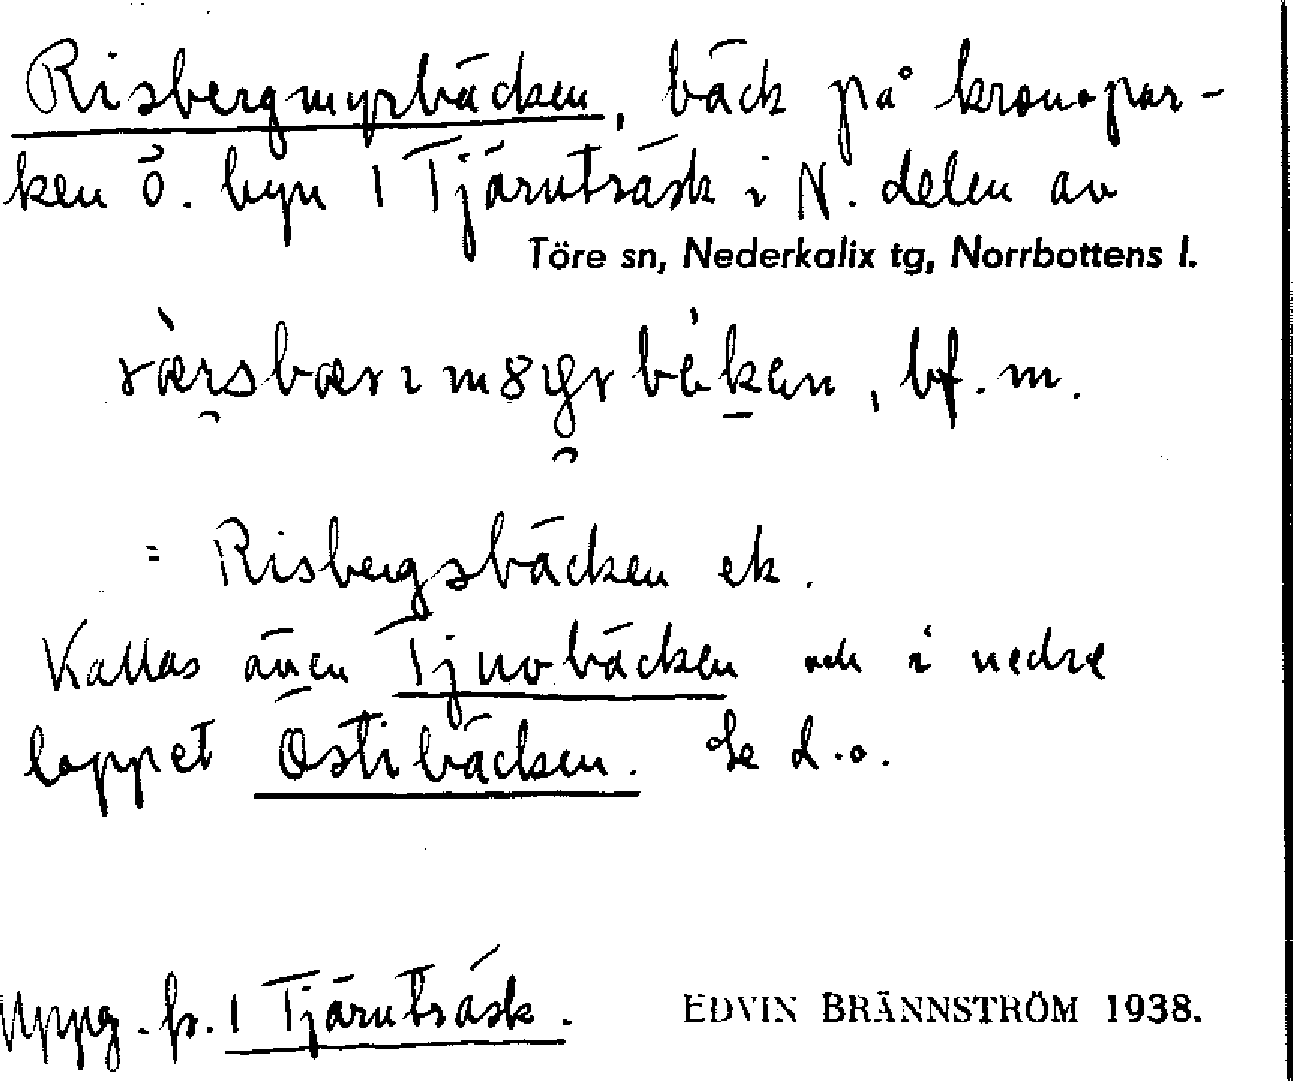 Risbergmyrbäcken, bäck på kronopar-
ken ö. byn 1 Tjärnträsk i N. delen av
Töre sn, Nederkalix tg, Norrbottens l.
bf. m.
= Risbergsbäcken ek.
Kallas även Tjuvbäcken och i nedre
loppet Östibäcken. Se d.o.
Uppg. fr. 1 Tjärnträsk.
EDVIN BRÄNNSTRÖM 1938.